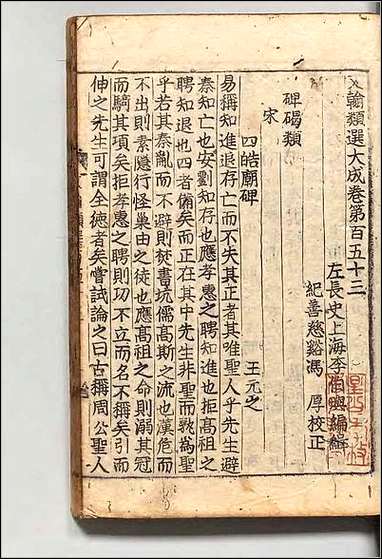 文翰類選大成卷第百五十三
左長史上海李伯璵編輯
紀善慈谿馮 厚校正
碑碣類
宋
四皓廟碑 王元之
易稱知進退存亡而不失其正者其唯聖人乎先生避
秦知亡也安劉知存也應孝惠之聘知進也拒髙祖之
聘知退也四者俻矣而正在其中先生非聖而孰為聖
乎若其秦亂而不避則焚書坑儒髙斯之流也漢危而
不出則素隱行怪巢由之徒也應髙祖之命則溺其冠
而騎其項矣拒孝惠之聘則功不立而名不稱矣引而
伸之先生可謂全徳者矣嘗試論之曰古稱周公聖人